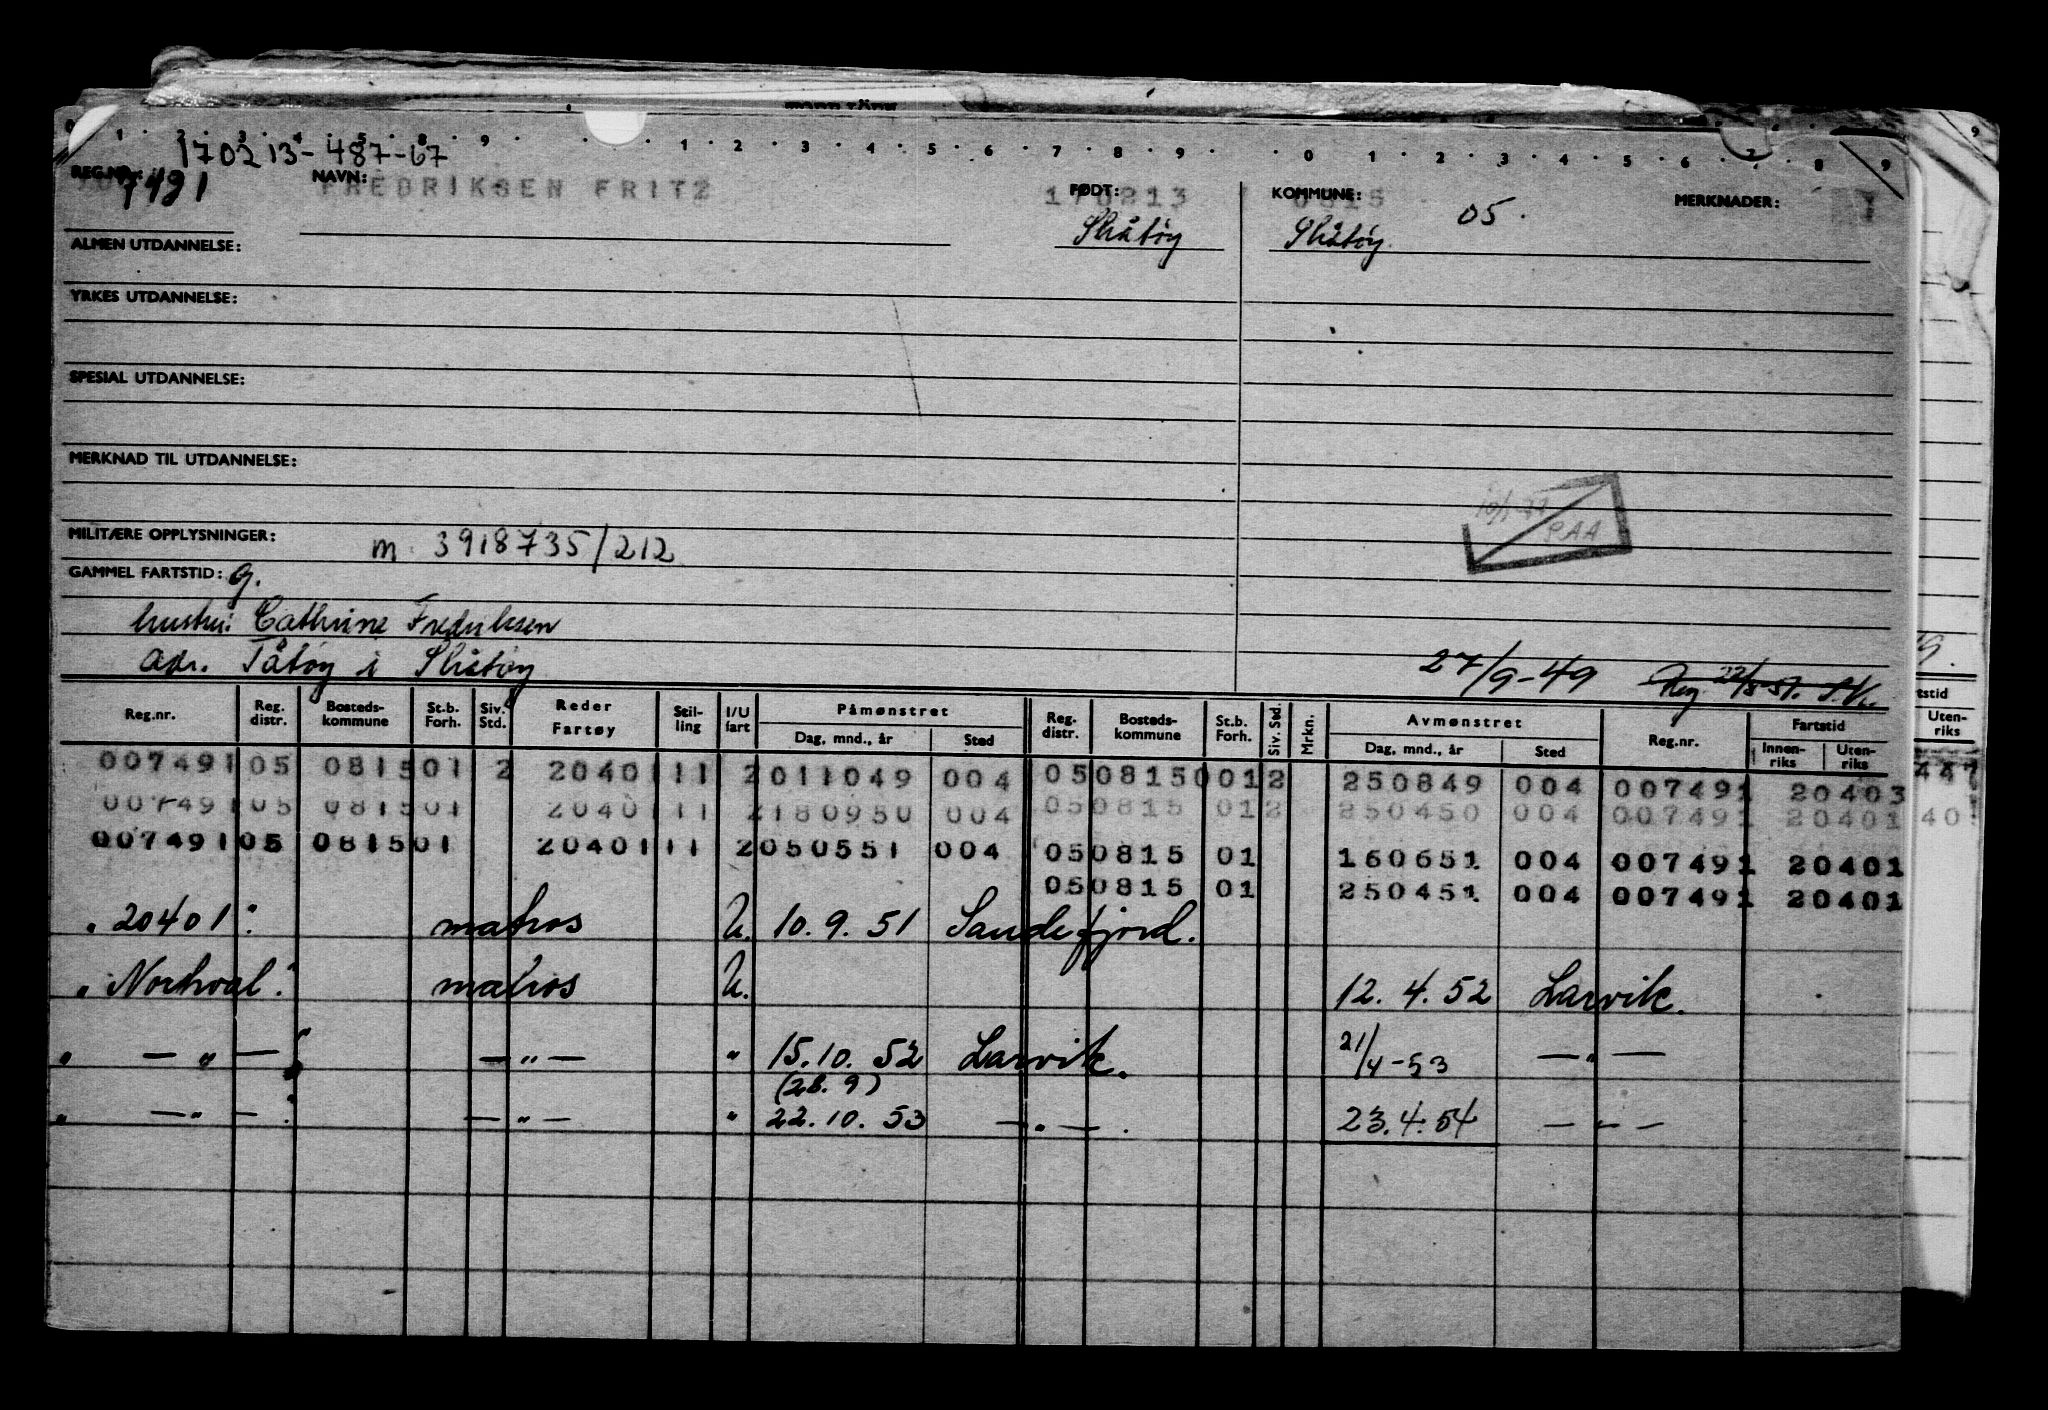 0 1 2 3 4 5 8 9 1 2 3 4 5 6 7 8 9 0 1 2 3 4 5 6 7 8 9
170213-487-67
REG.NR.: 7491 NAVN: FREDRIKSEN FRITZ FØDT: 170213 KOMMUNE: 0815 05. MERKNADER:
Skåtøy Skåtøy.
ALMEN UTDANNELSE:
YRKES UTDANNELSE:
SPESIAL UTDANNELSE:
MERKNAD TIL UTDANNELSE:
MILITÆRE OPPLYSNINGER: m. 3918735/212
PAA
GAMMEL FARTSTID: G.
hustru: Cathrine Fredriksen
adr. Tåtøy i Skåtøy 27/9-49
Reg.nr. Reg. distr. Bosteds-kommune St.b. Forh. Siv. Std. Reder Fartøy Stil-ling I/U fart Påmønstret Dag, mnd., år Sted Reg. distr. Bosteds-kommune St.b. Forh. Siv. Std. Mrkn. Avmønstret Dag, mnd., år Sted Reg.nr. Fartstid Innen-riks Uten-riks
007491 05 0815 01 2 20401 11 2 011049 004 05 0815 001 2 250849 004 007491 20403
007491 05 0815 01 20401 11 2 180950 004 05 0815 01 2 250450 004 007491 20401 40
007491 05 0815 01 20401 11 2 050551 004 05 0815 01 160651 004 007491 20401
05 0815 01 250451 004 007491 20401
" 20401: matros U. 10.9.51 Sandefjord.
" Norhval: matros U. 12.4.52 Larvik.
" — " — — " — " 15.10.52 Larvik. 21/4-53 — " —
(2B. 9)
" — " — : — " — " 22.10.53 — " — . 23.4.54 — " —